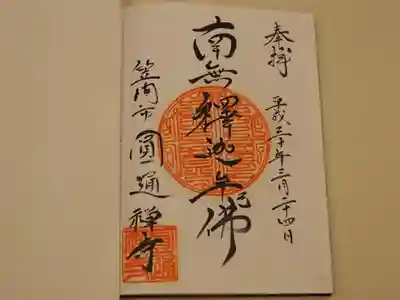 奉拝
平成三十年三月二十四日
南無釋迦牟尼佛
笠間市 圓通禅寺